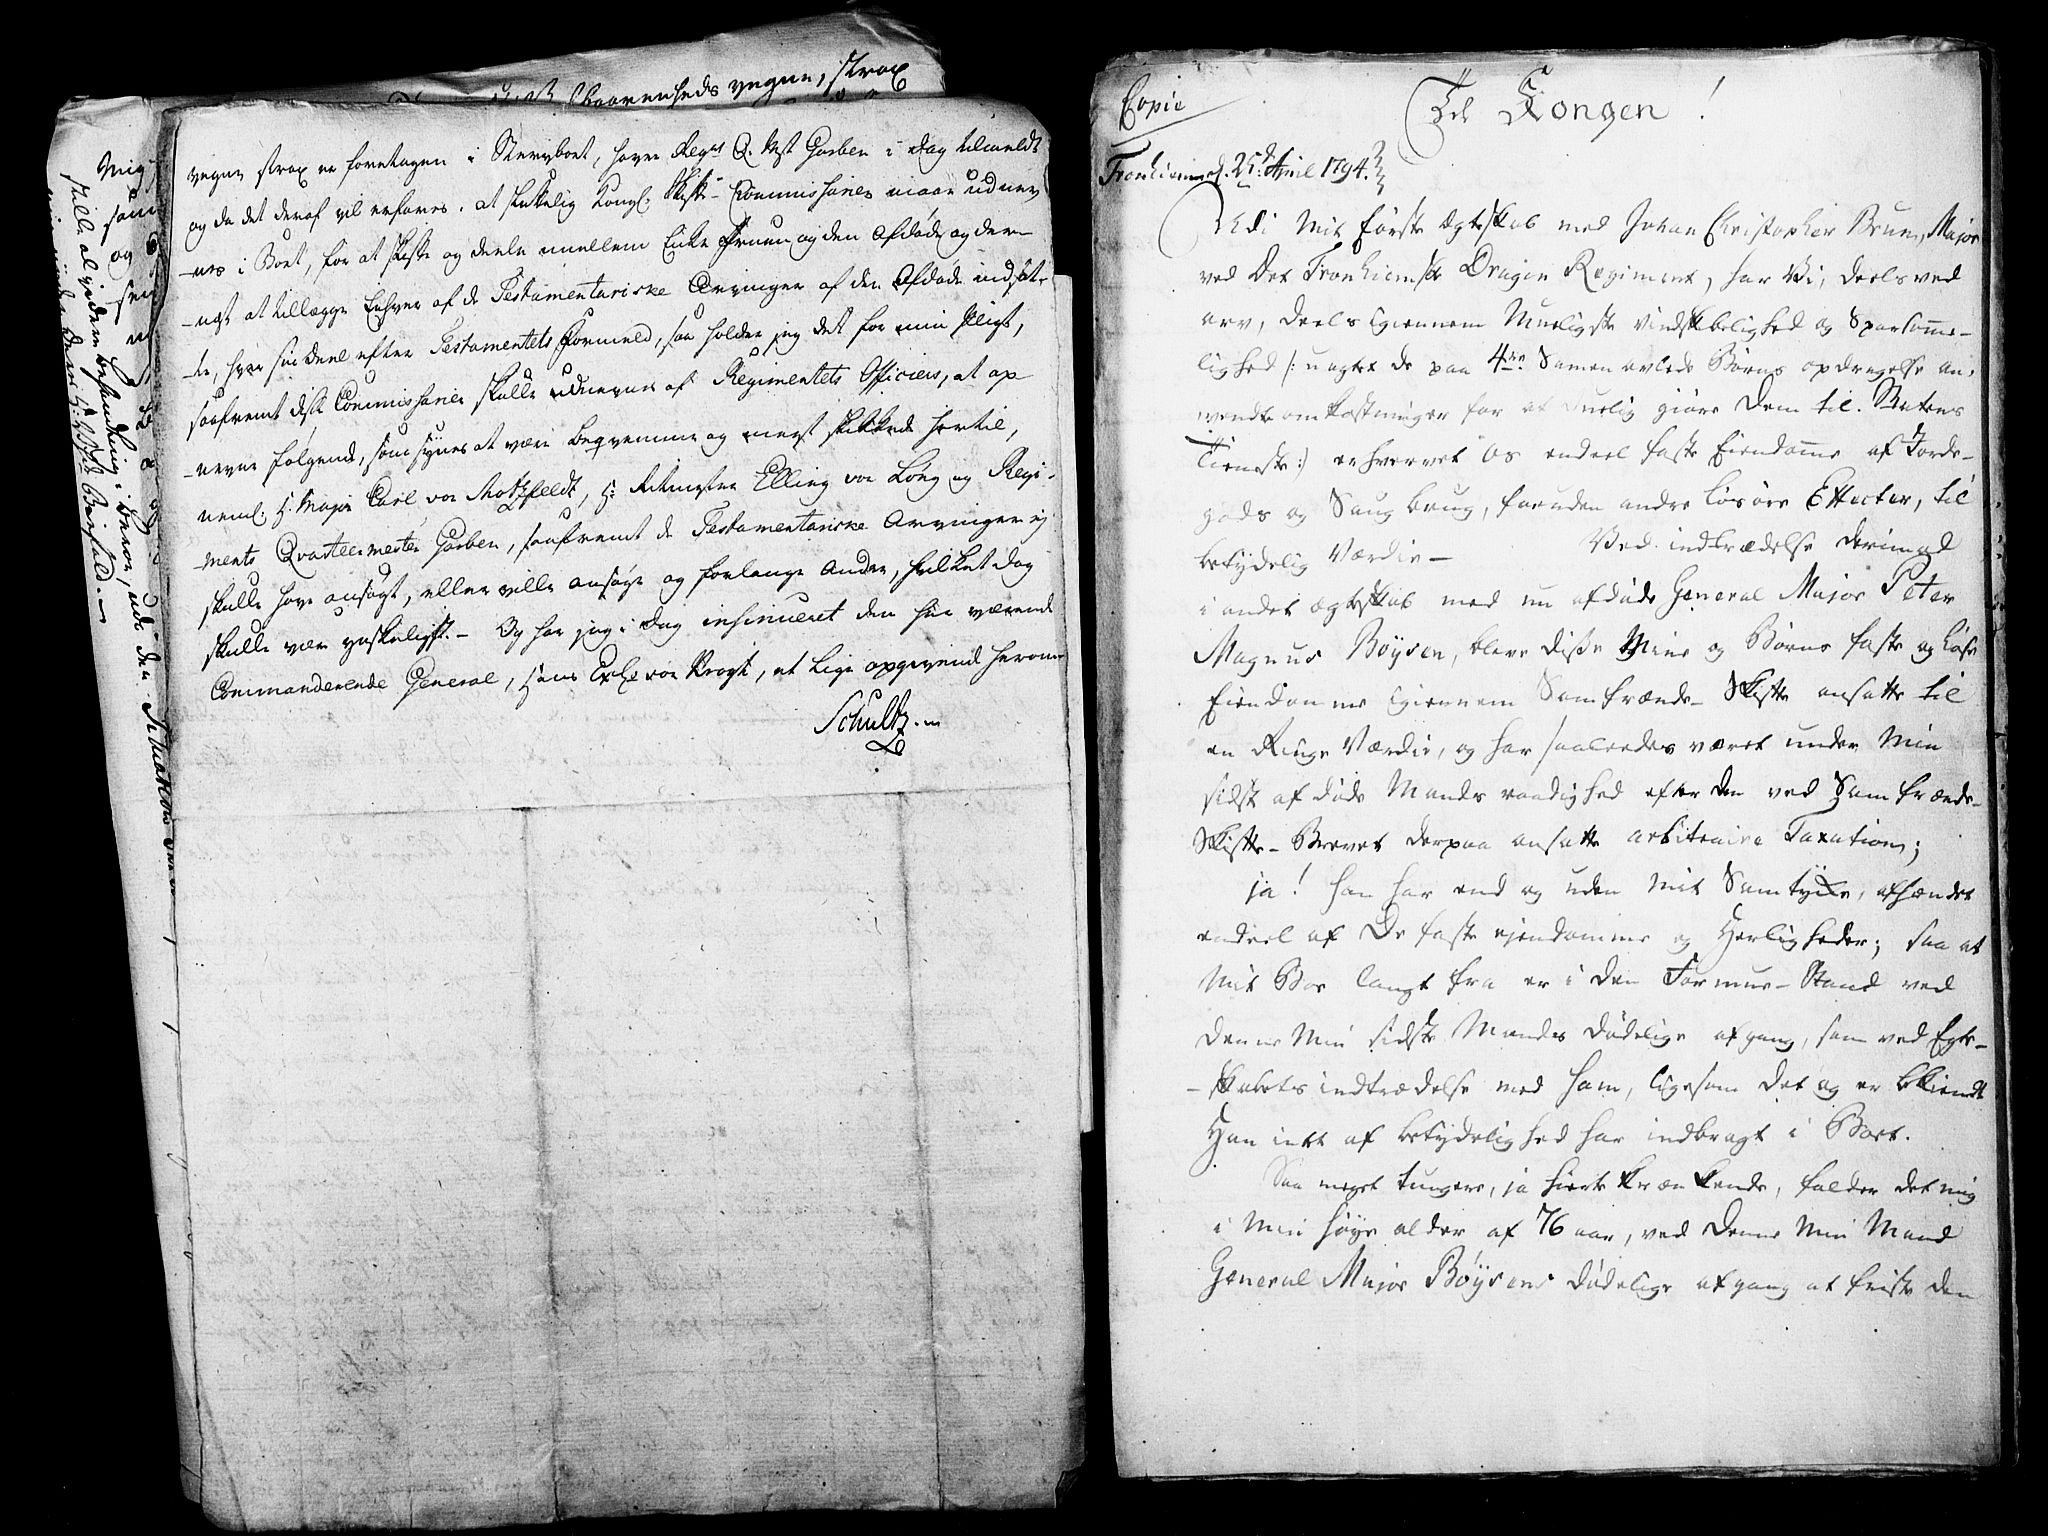 baarenheds vegne, strax
vegne strax er foretagen i Stervboet, haver Reg:ts Q. Mst Garben i dag tilmeldt
og da det deraf vil erfares, at skikkelig Kongl: Skifte-Commissairer maae udnev-
-nes i Boet, for at skifte og deele imellem Enke Fruen og den Afdøde og der-
-næst at tillægge Enhver af de Testamentariske Arvinger af den Afdøde indsat-
-te, hver sin Deel efter Testamentets Formeld, saa holder jeg det for min Pligt,
saafremt disse Commissairer skulle udnevnes af Regimentets Officiers, at op-
-nevne følgende, som synes at være beqvemme og meest skikkede hertil,
neml: H. Major Carl von Motzfeldt, H: Ritmester Elling von Løng og Regi-
-ments Qvarteermester Garben, saafremt de Testamentariske Arvinger ej
skulle have ansøgt, eller ville ansøge og forlange Andre, hvilket dog
skulle være ynskeligst. - Og har jeg i dag insinueret den her værende
Commanderende General, Hans Exl: von Krogh, at lige opgivende herom
Schultz
Mig
som
og
sen
stille al videre behandling i Beroe, indi den
Copie
Til Kongen!
Tronhiem d. 25:d April 1794.
Udi Mit første Ægteskab med Johan Christopher Brun, Major
ved Det Tronhiemske Dragon Regiment, har Vi, deels ved
arv, deels igiennem Mueligste vindskibelighed og Sparsomme-
lighed /: uagtet de paa 4re Sammen avlede Børns opdragelse an-
vendte omkostninger for at duelig giøre Dem til Statens
Tieneste :/ erhvervet os endeel faste Eiendomme af Jorde-
gods og Saug brug, foruden andre løsøre Effecter, til
betydelig Værdie - Ved indtrædelse derimod
i andet ægteskab med nu afdøde General Major Peter
Magnus Bøysen, bleve disse Mine og Børns faste og løse
Eiendomme igiennem Samfrænde-Skifte ansatte til
en Ringe Værdie, og har saaledes været under Min
sidst afdøde Mands raadighed efter den ved Samfrænde-
Skifte-Brevet derpaa ansatte arbitraire Taxation;
ja! han har end og uden Mit Samtykke, afhændet
endeel af De faste ejendomme og Herligheder; saa at
Mit Boe langt fra er i den Formue-Stand ved
denne Min sidste Mandes dødelige afgang, som ved Egte-
-skabets indtrædelse med ham, ligesom det og er bekiendt
Han intet af betydelighed har indbragt i Boet.
Saa meget tungere, ja hierte krænkende, falder det mig
i Min høye alder af 76 aar, ved Denne Min Mand
General Major Bøysens dødelige afgang at friste den